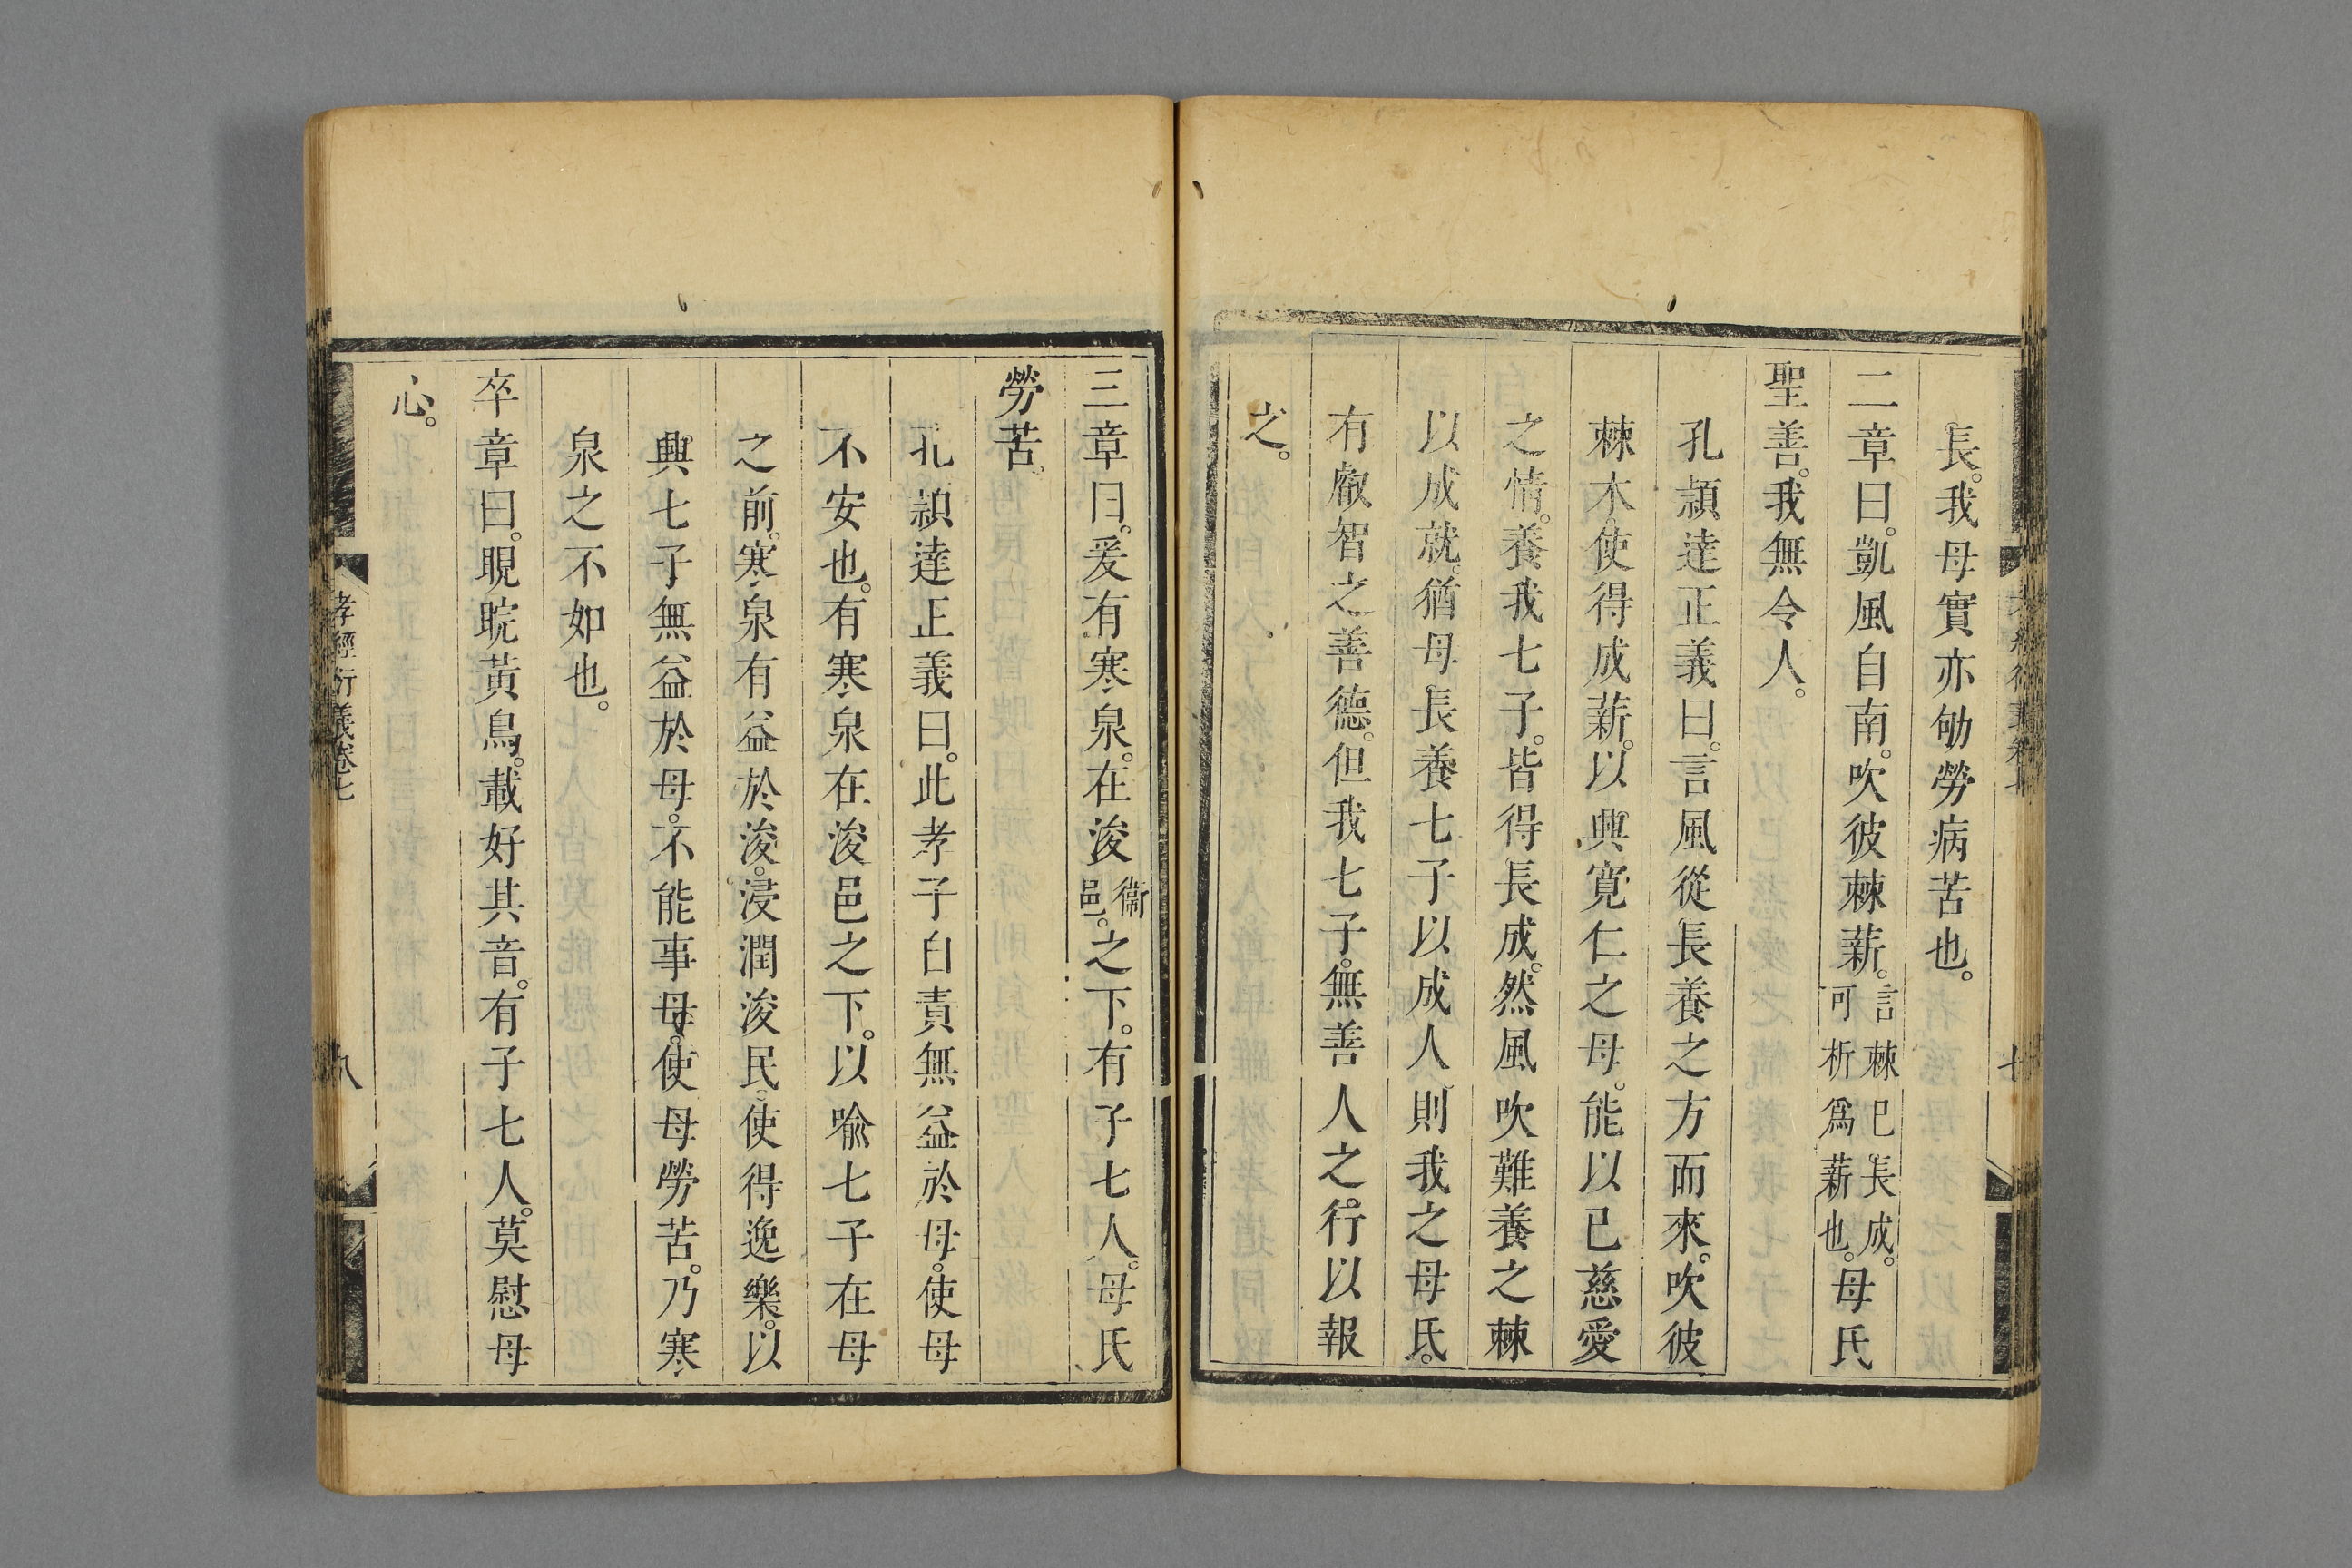 長。我母實亦劬勞病苦也。
二章曰。凱風自南。吹彼棘薪。言棘已長成。可析爲薪也。母氏
聖善。我無令人。
孔頴達正義曰。言風從長養之方而來。吹彼
棘木。使得成薪。以興寛仁之母。能以已慈愛
之情。養我七子。皆得長成。然風吹難養之棘
以成就。猶母長養七子以成人。則我之母氏。
有叡智之善德。但我七子。無善人之行以報
之。
孝經衍義卷七
七
三章曰。爰有寒泉。在浚衞邑。之下。有子七人。母氏
勞苦。
孔頴達正義曰。此孝子自責無益於母。使母
不安也。有寒泉在浚邑之下。以喻七子在母
之前。寒泉有益於浚。浸潤浚民。使得逸樂。以
興七子無益於母。不能事母。使母勞苦。乃寒
泉之不如也。
卒章曰。睍睆黃鳥。載好其音。有子七人。莫慰母
心。
孝經衍義卷七
八